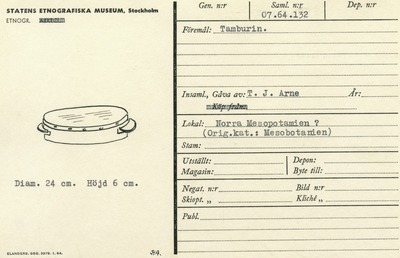 STATENS ETNOGRAFISKA MUSEUM, Stockholm
ETNOGR.
Diam. 24 cm. Höjd 6 cm.
ELANDERS, GBG. 2075. 1. 64.
Gen. n:r Saml. n:r Dep. n:r
07.64.132
Föremål: Tamburin.
Insaml., Gåva av: T. J. Arne År:
Köp från
Lokal: Norra Mesopotamien ?
(Orig.kat.: Mesobotamien)
Stam:
Utställt: Depon:
Magasin: Byte till:
Negat. n:r Bild n:r
Skiopt. „ Kliché „
Publ.